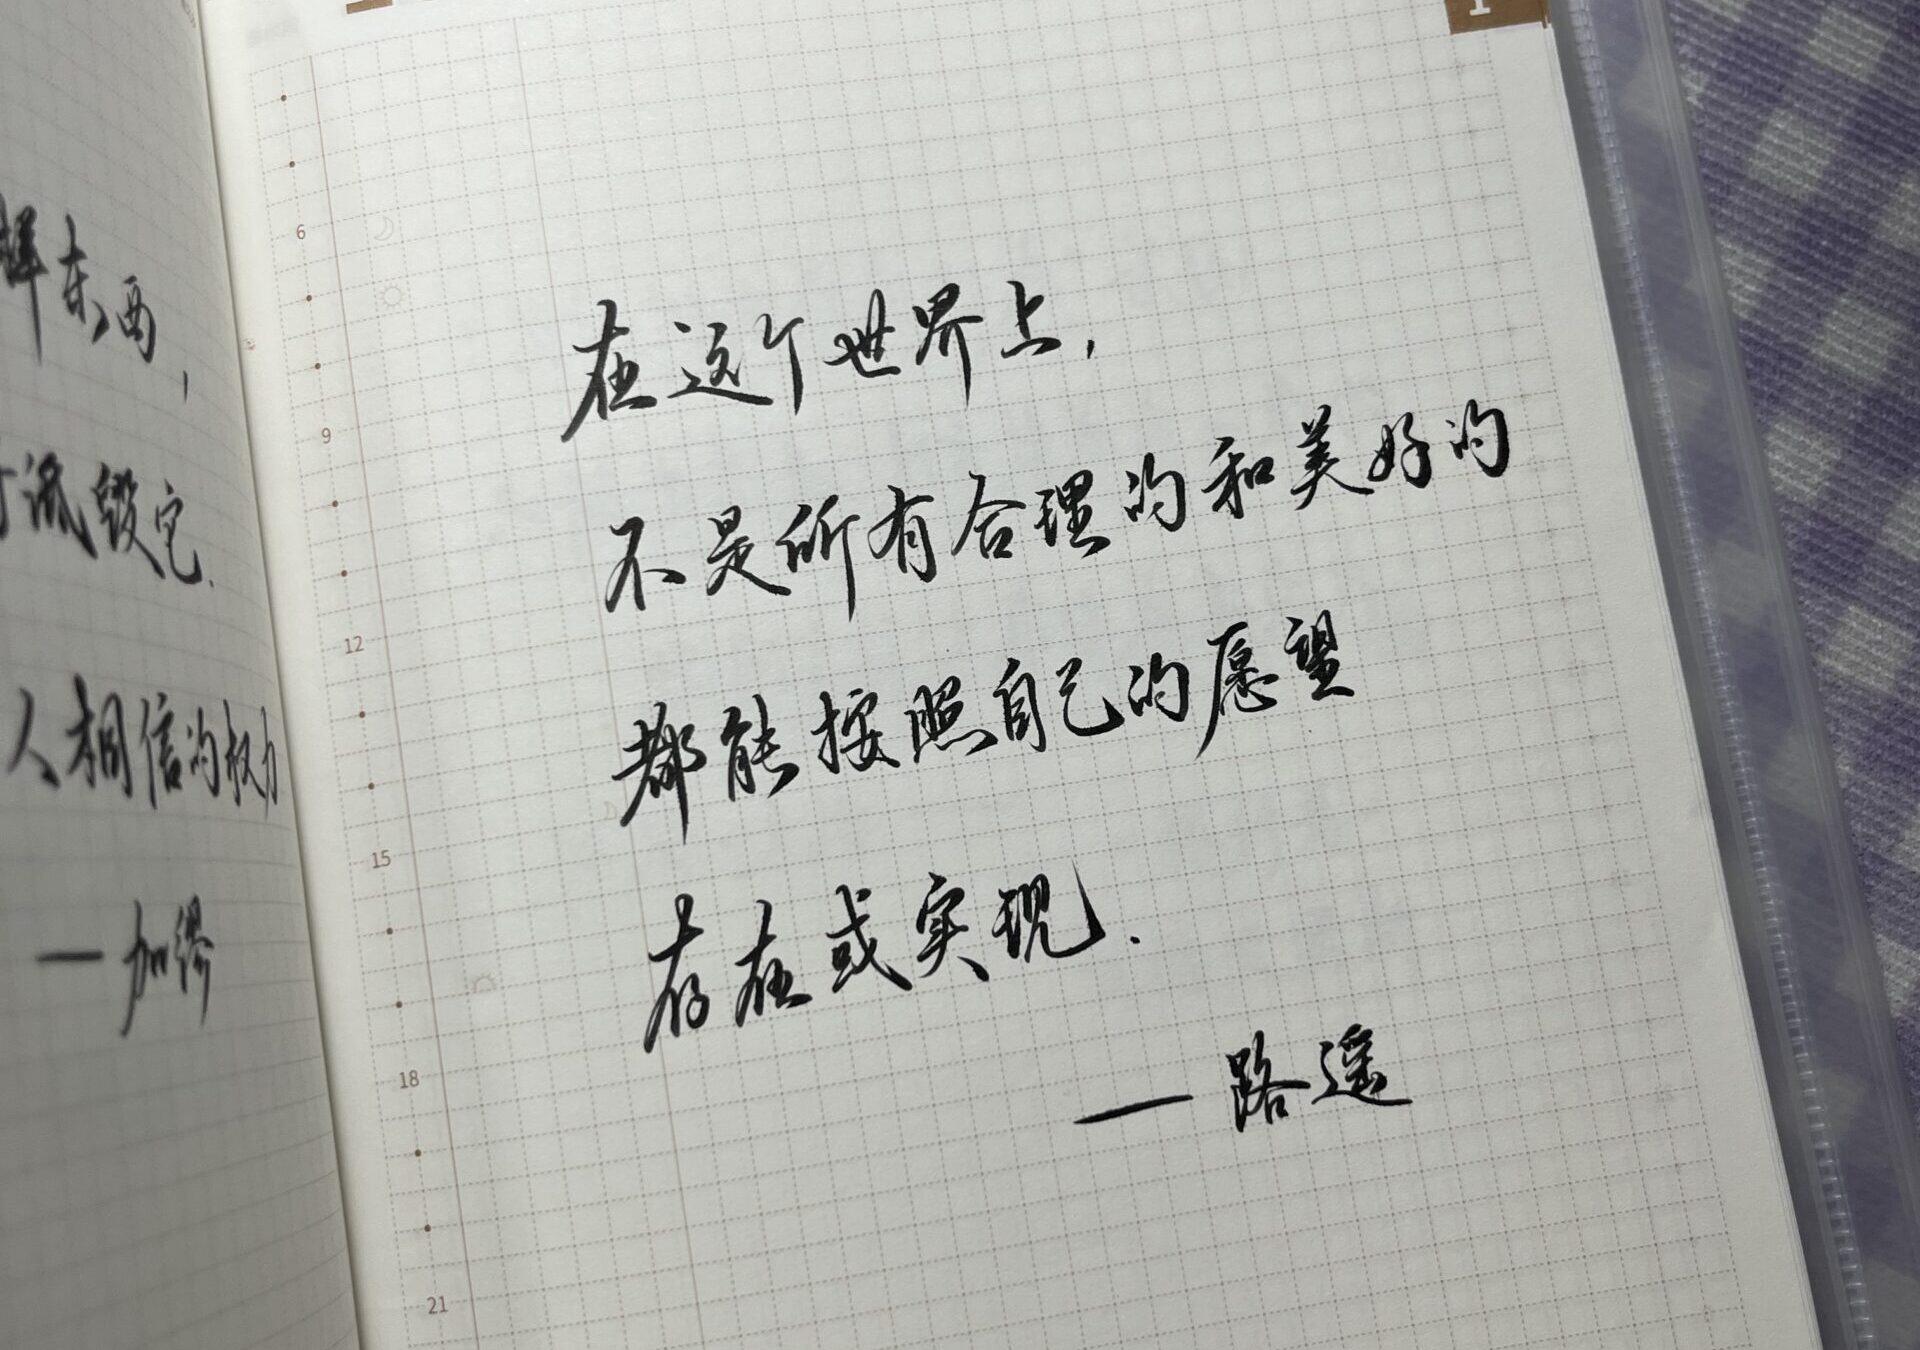 东西,
毁它.
人相信的权力
—加缪
6
9
12
15
18
21
在这个世界上,
不是所有合理的和美好的
都能按照自己的愿望
存在或实现.
—路遥